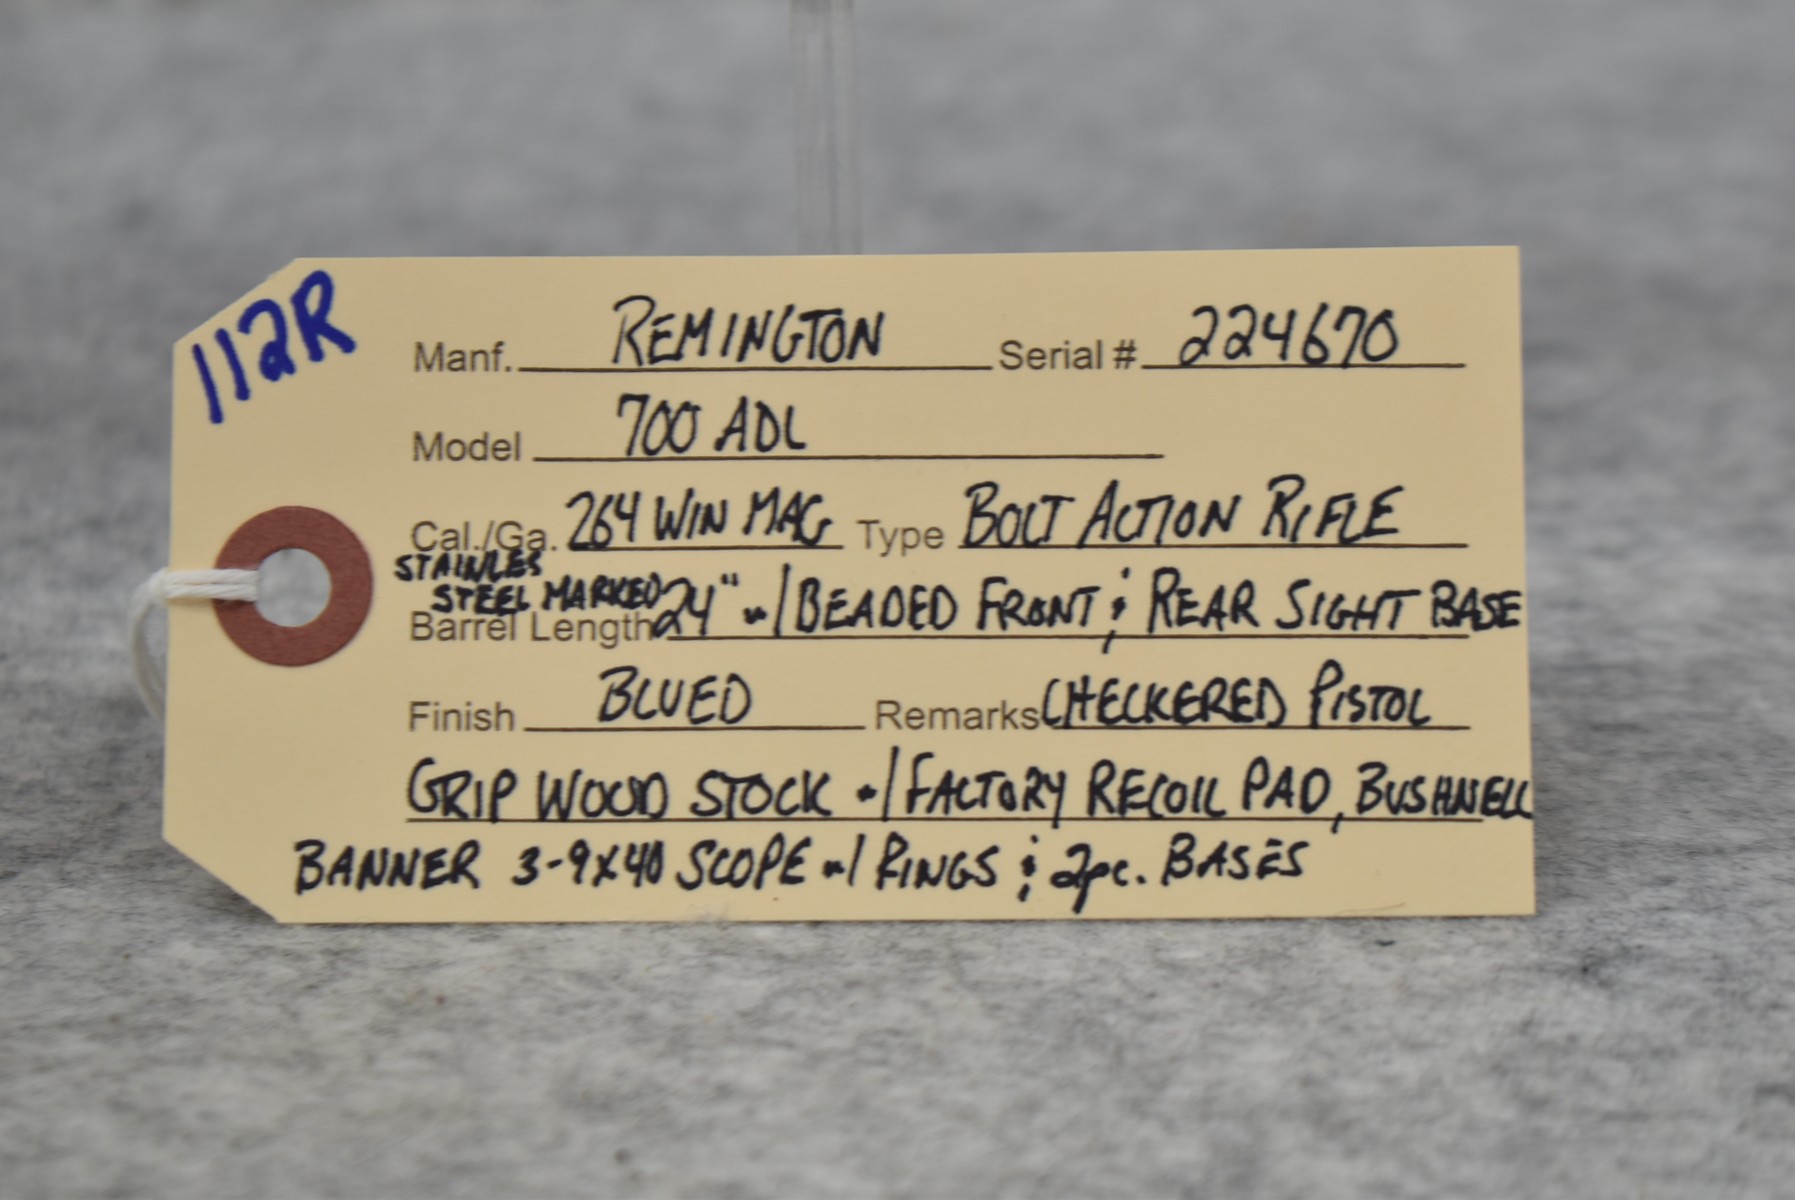 112R
Manf. REMINGTON Serial # 224670
Model 700 ADL
Cal./Ga. 264 WIN MAG Type BOLT ACTION RIFLE
STAINLES
STEEL MARKED
Barrel Length 24" w/ BEADED FRONT & REAR SIGHT BASE
Finish BLUED Remarks CHECKERED PISTOL
GRIP WOOD STOCK w/ FACTORY RECOIL PAD, BUSHNELL
BANNER 3-9X40 SCOPE w/ RINGS & 2pc. BASES